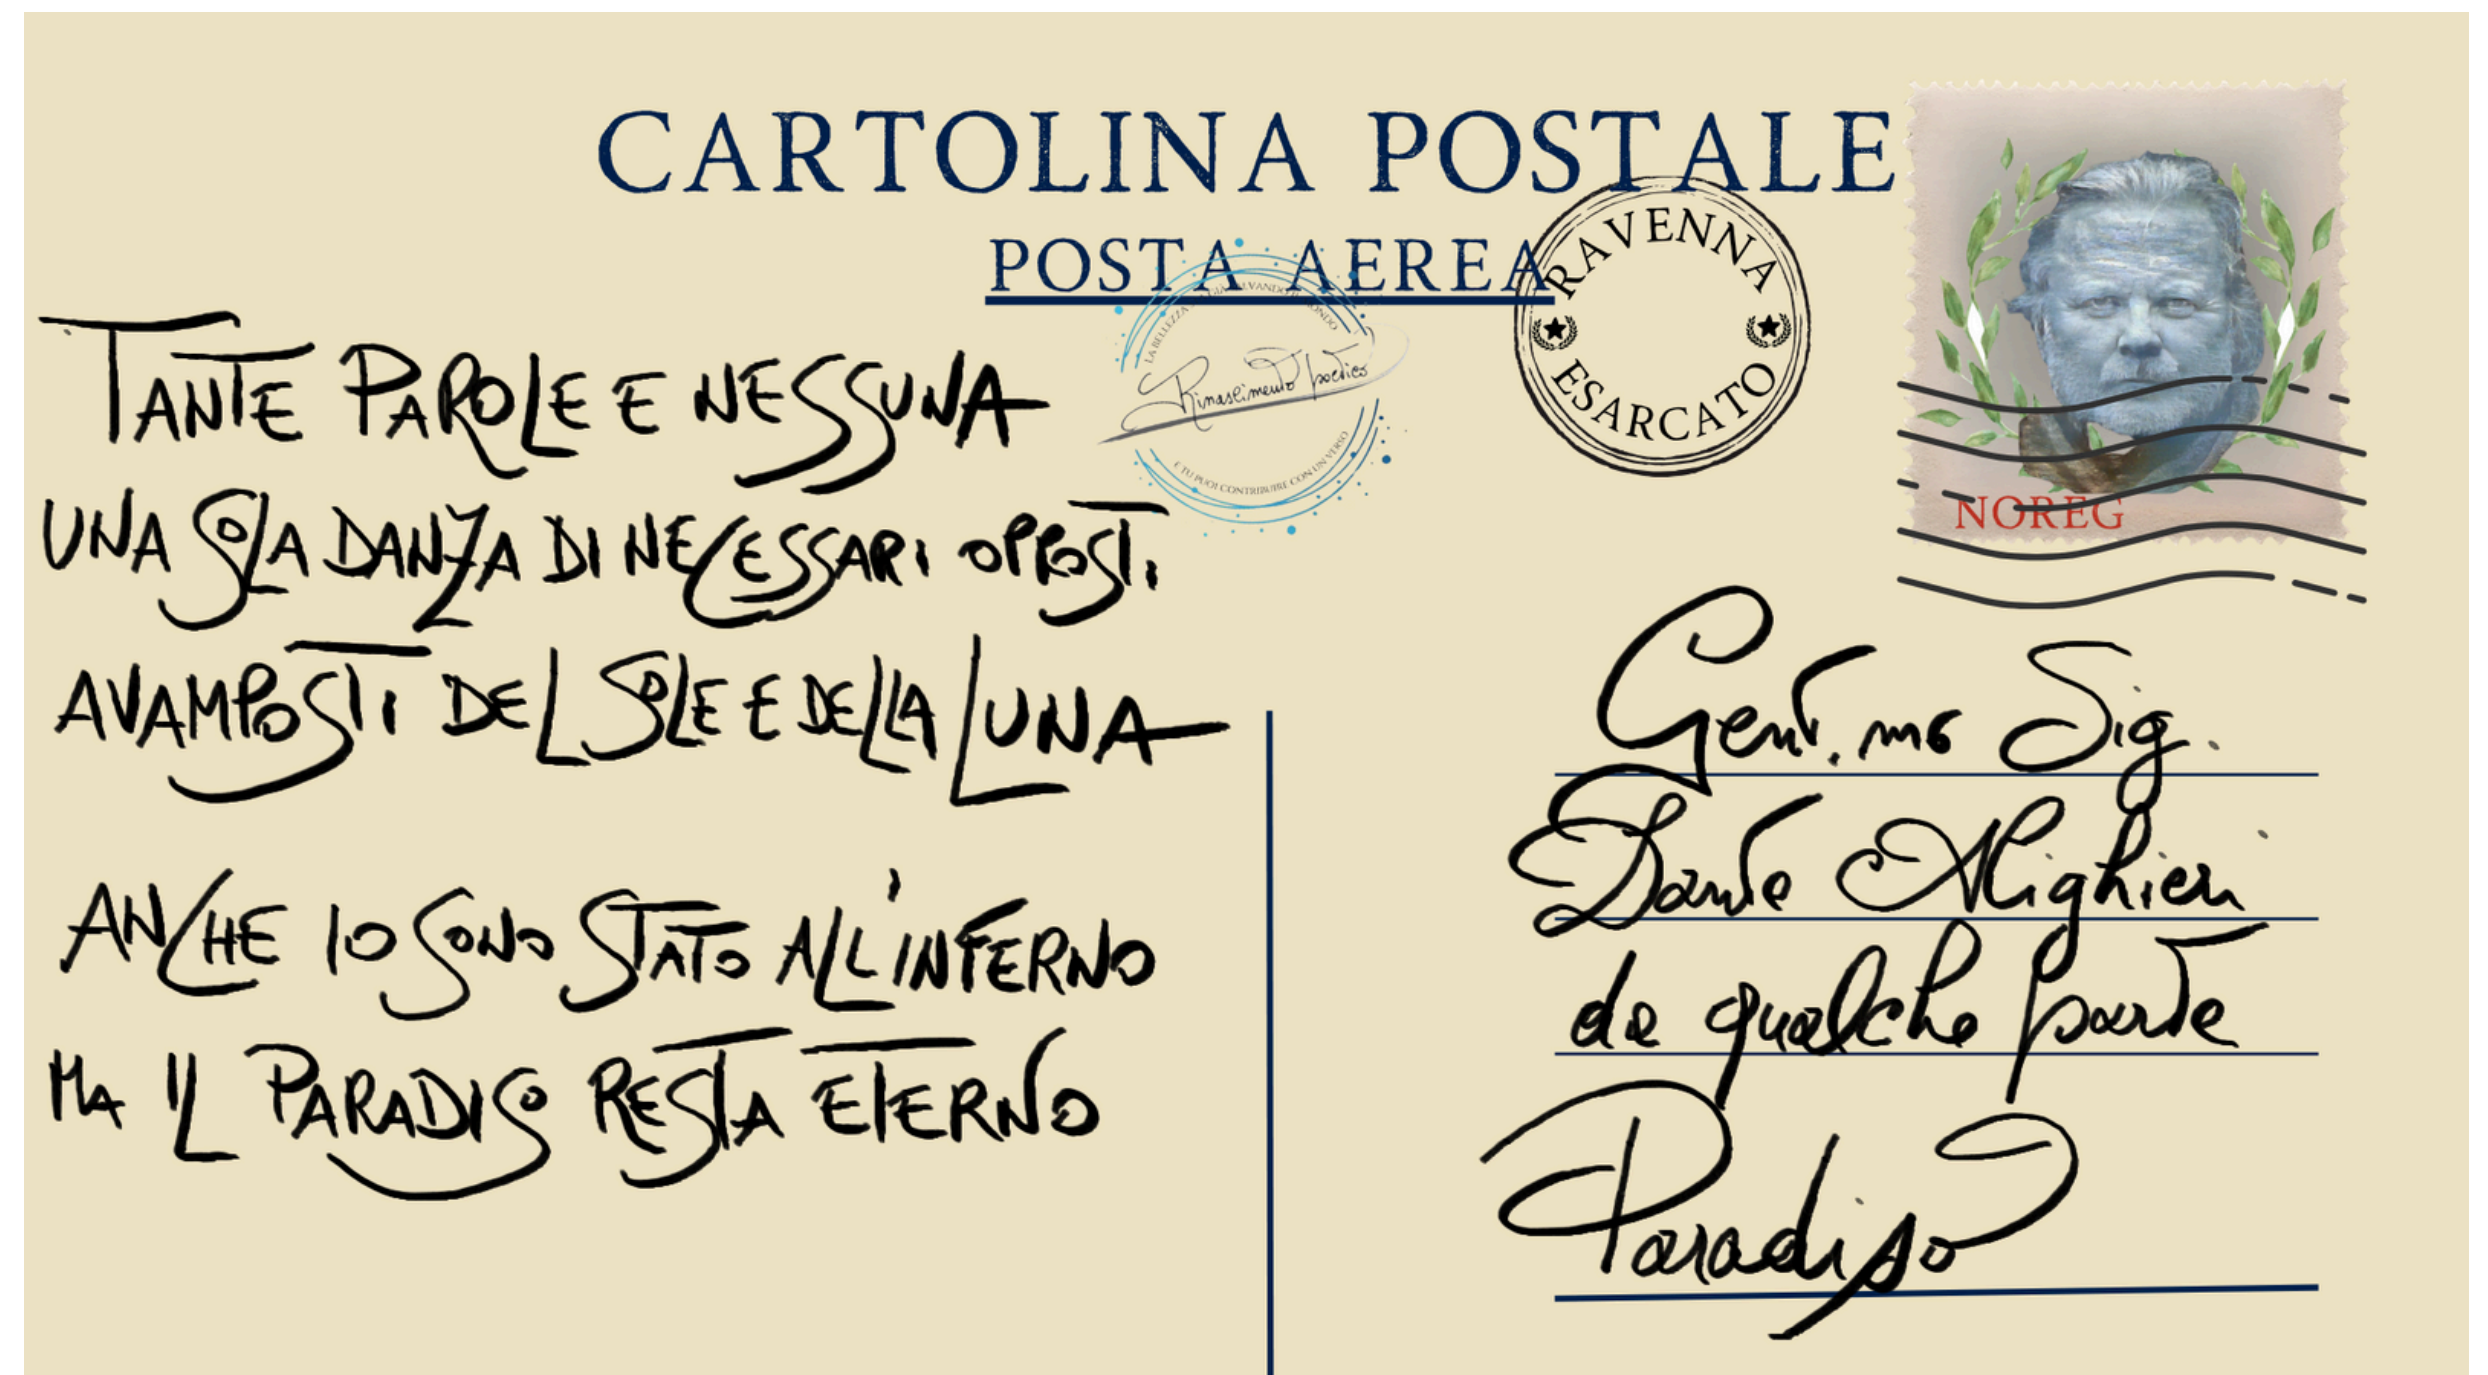 CARTOLINA POSTALE
POSTA AEREA
RAVENNA
ESARCATO
LA BELLEZZA GIÀ SALVANDO IL MONDO
Rinascimento poetico
E TU PUOI CONTRIBUIRE CON UN VERSO
NOREG
TANTE PAROLE E NESSUNA
UNA SOLA DANZA DI NECESSARI OPPOSTI
AVAMPOSTI DEL SOLE E DELLA LUNA
ANCHE IO SONO STATO ALL'INFERNO
MA IL PARADISO RESTA ETERNO
Gent.mo Sig.
Dante Alighieri
da qualche parte
Paradiso